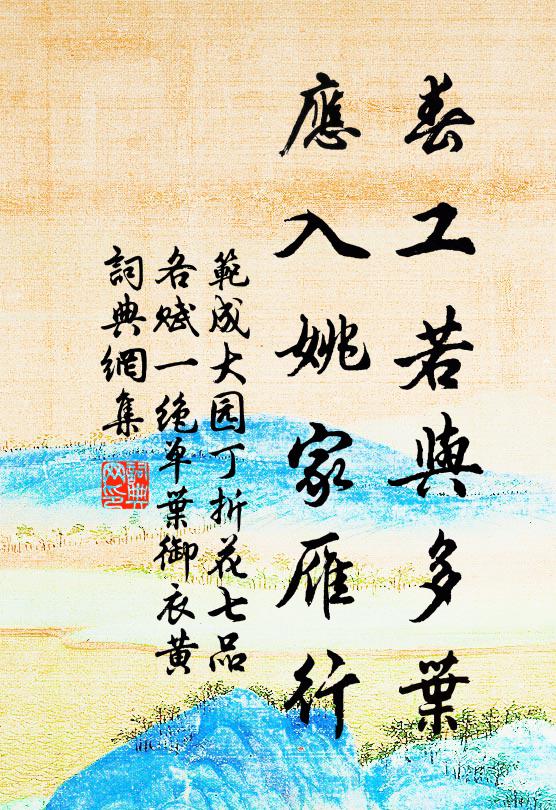 春工若與多葉
應入姚家雁行
範成大园丁折花七品
各賦一绝单葉御衣黄
詞典網集